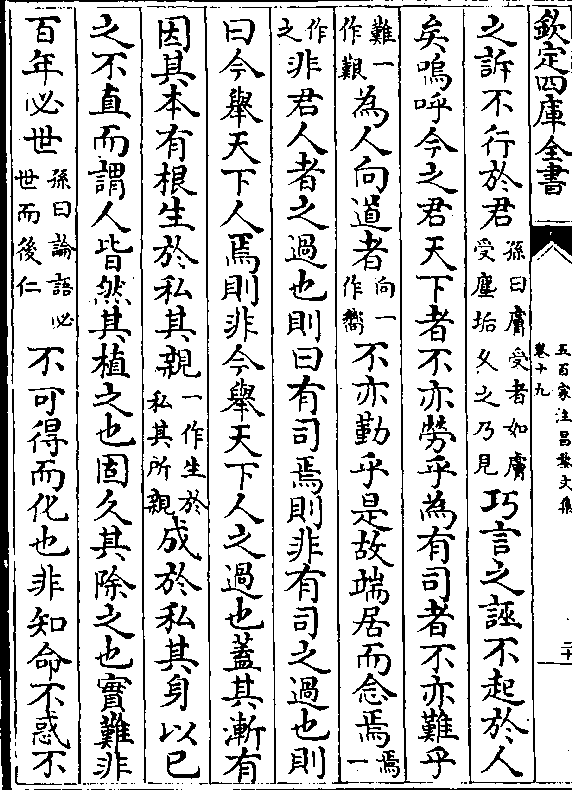 欽定四庫全書
五百家注昌黎文集
卷十九
二十
之訴不行於君孫曰膚受者如膚受塵垢久之乃見巧言之誣不起於人
矣嗚呼今之君天下者不亦勞乎為有司者不亦難乎
難一作艱為人向道者向一作嚮不亦勤乎是故端居而念焉焉一
作之非君人者之過也則曰有司焉則非有司之過也則
曰今舉天下人焉則非今舉天下人之過也蓋其漸有
因其本有根生於私其親一作生於私其所親成於私其身以已
之不直而謂人皆然其植之也固久其除之也實難非
百年必世孫曰論語必世而後仁不可得而化也非知命不惑不